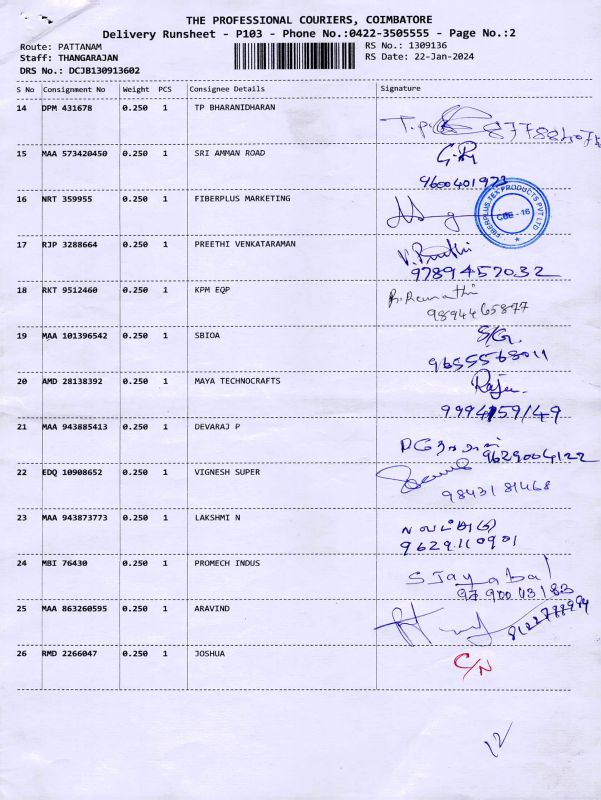 THE PROFESSIONAL COURIERS, COIMBATORE
Delivery Runsheet - P103 - Phone No.:0422-3505555 - Page No.:2
Route: PATTANAM
RS No.: 1309136
Staff: THANGARAJAN
RS Date: 22-Jan-2024
DRS No.: DCJB130913602
S No Consignment No Weight PCS Consignee Details Signature
14 DPM 431678 0.250 1 TP BHARANIDHARAN
15 MAA 573420450 0.250 1 SRI AMMAN ROAD
9600401923
16 NRT 359955 0.250 1 FIBERPLUS MARKETING
FIBERPLUS TEX PRODUCTS PVT LTD
CBE - 16
17 RJP 3288664 0.250 1 PREETHI VENKATARAMAN
9789457032
18 RKT 9512460 0.250 1 KPM EQP
9894465877
19 MAA 101396542 0.250 1 SBIOA
S/G
9655568011
20 AMD 28138392 0.250 1 MAYA TECHNOCRAFTS
Raju
9994159149
21 MAA 943885413 0.250 1 DEVARAJ P
9629004122
22 EDQ 10908652 0.250 1 VIGNESH SUPER
9843181468
23 MAA 943873773 0.250 1 LAKSHMI N
9629110901
24 MBI 76430 0.250 1 PROMECH INDUS
S Jayabal
9790003183
25 MAA 863260595 0.250 1 ARAVIND
8122777994
26 RMD 2266047 0.250 1 JOSHUA
C/N
12